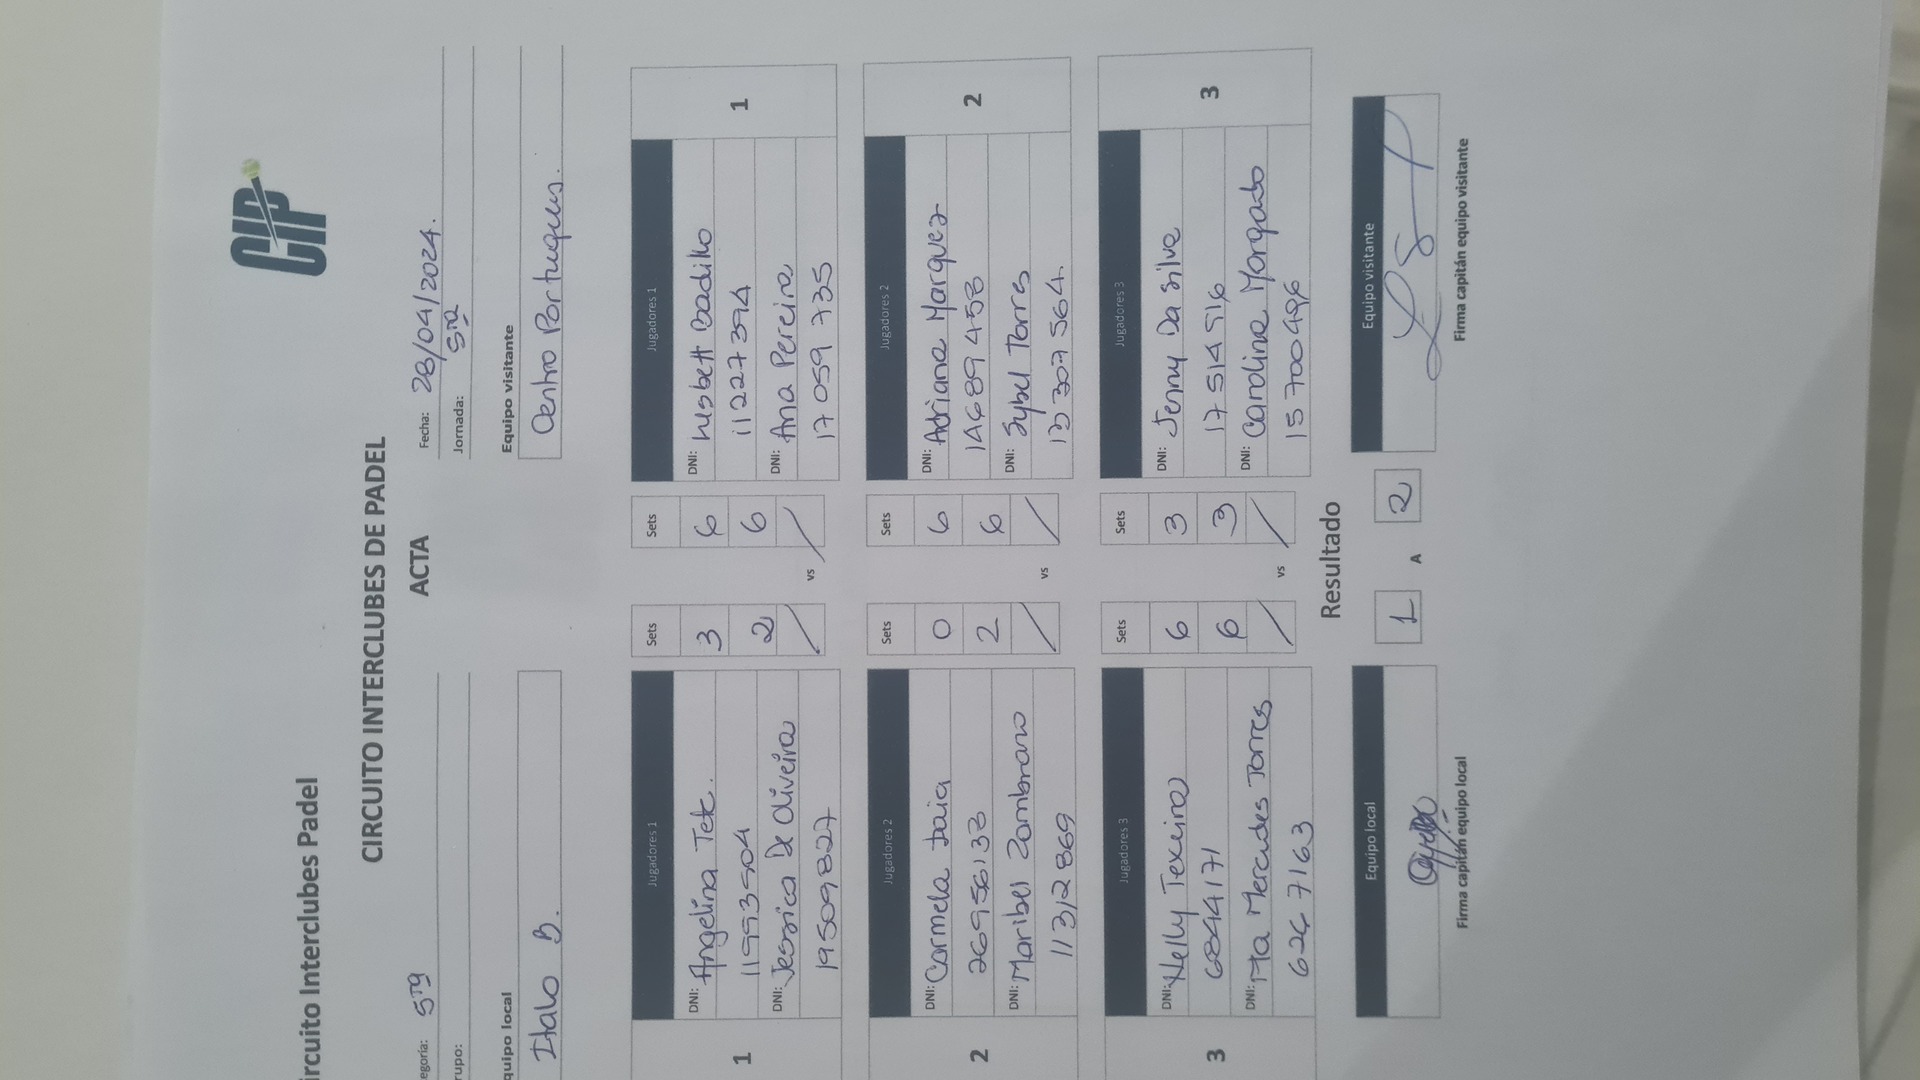 CIP
ircuito Interclubes Padel
CIRCUITO INTERCLUBES DE PADEL
ACTA
egoría: 5ta
Fecha: 28/04/2024.
rupo:
Jornada: 5ta
quipo local
Equipo visitante
Italo B.
Centro Portugues.
Jugadores 1
Sets
Sets
Jugadores 1
1
DNI: Angelina Tek.
3
6
DNI:
1
11993504
2
vs
6
11227394
DNI: Jessica De Oliveira
DNI: Ana Pereira
19509827
17059735
Jugadores 2
Sets
Sets
Jugadores 2
2
DNI: Carmela
0
6
DNI: Adriana Marquez
2
26956138
2
vs
6
14689458
DNI: Maribel Zambrano
DNI: Sybel Torres
11312869
13307564.
Jugadores 3
Sets
Sets
Jugadores 3
3
DNI: Nelly Texeira
6
3
DNI: Jenny Da Silva
3
6844171
6
vs
3
DNI: Ma Mercedes Torres
DNI: Carolina Morgado
6247163
15700496
Resultado
Equipo local
1 A 2
Equipo visitante
Firma capitán equipo local
Firma capitán equipo visitante